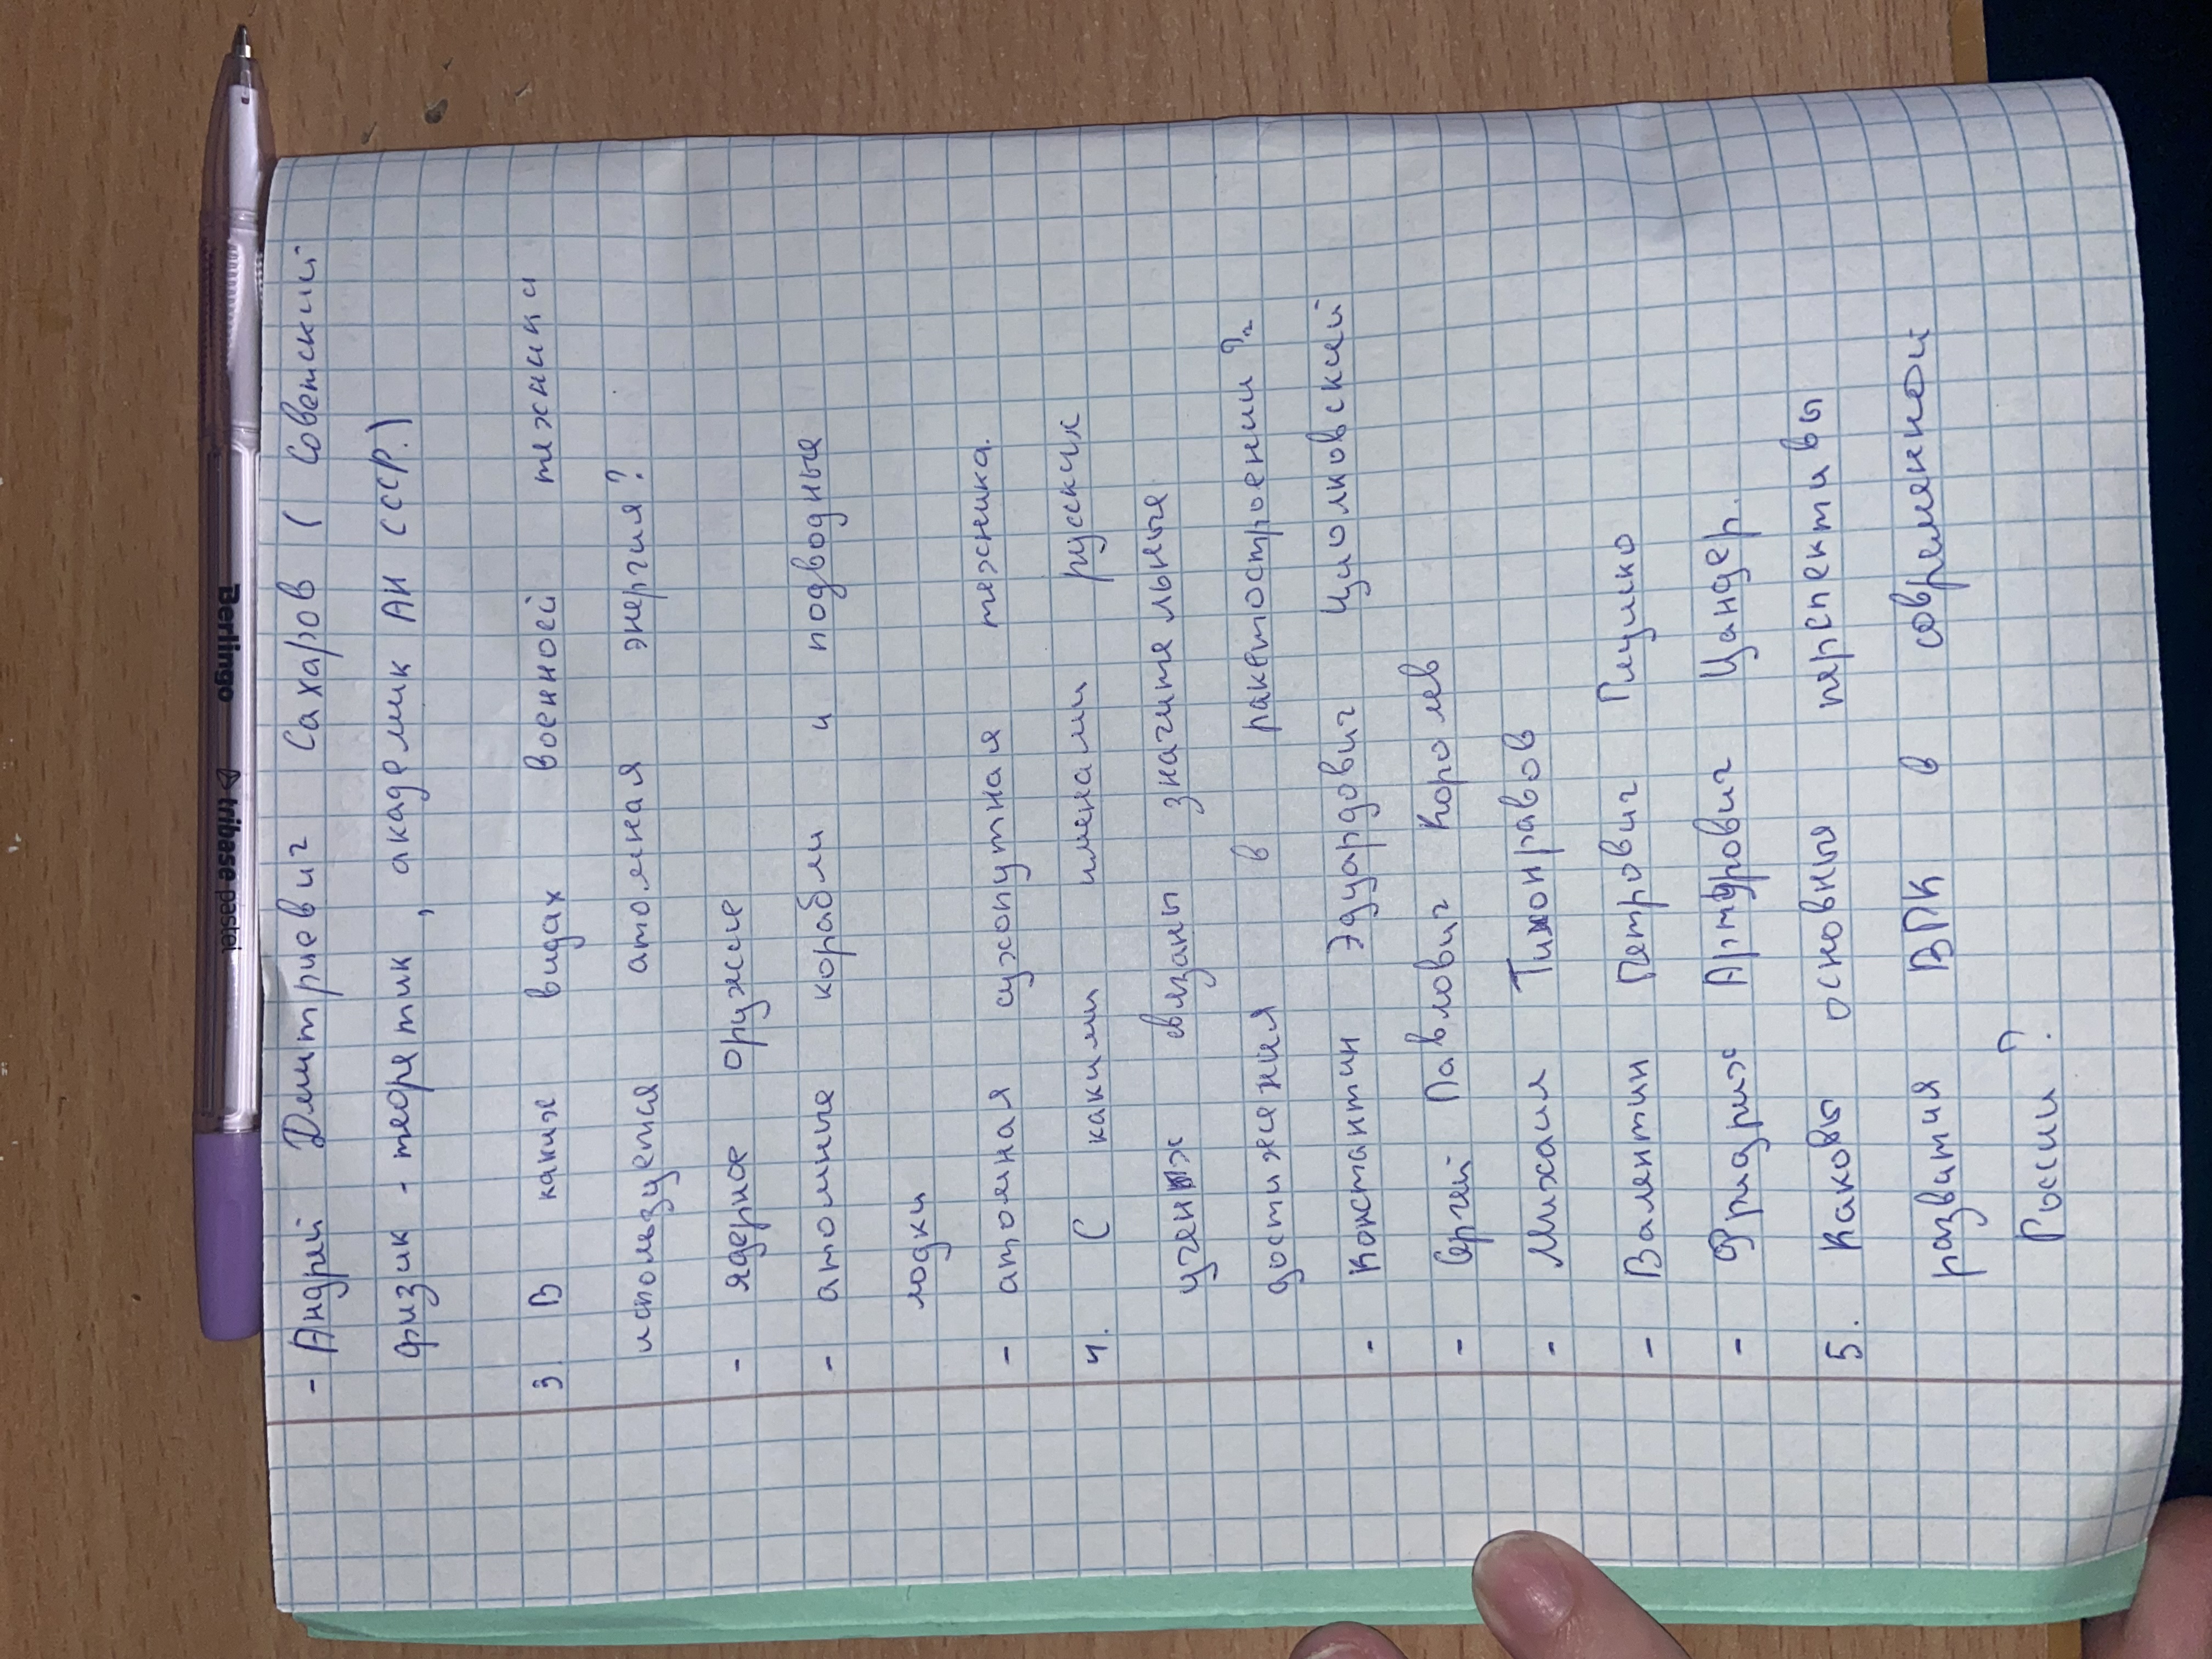 - Андрей Дмитриевич Сахаров ( Советский
физик - теоретик , академик АН СССР.)
3. В каких видах военной техники
используется атомная энергия?
- ядерное оружие
- атомные корабли и подводные
лодки
- атомная сухопутная техника.
4. С какими именами русских
ученых связаны значительные
достижения в ракетостроении?
- Константин Эдуардович Циолковский
- Сергей Павлович Королев
- Михаил Тихонравов
- Валентин Петрович Глушко
- Фридрих Артурович Цандер.
5. Каковы основные перспективы
развития ВПК в современной
России?
Berlingo tribase pastel